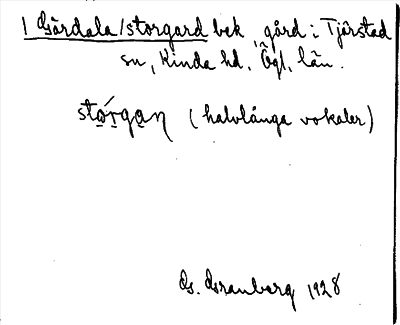 1 Gärdala/storgard bek, gård i Tjärstad
sn, Kinda hd, Ögl. län.
stórgan (halvlånga vokaler)
G. Granberg 1928